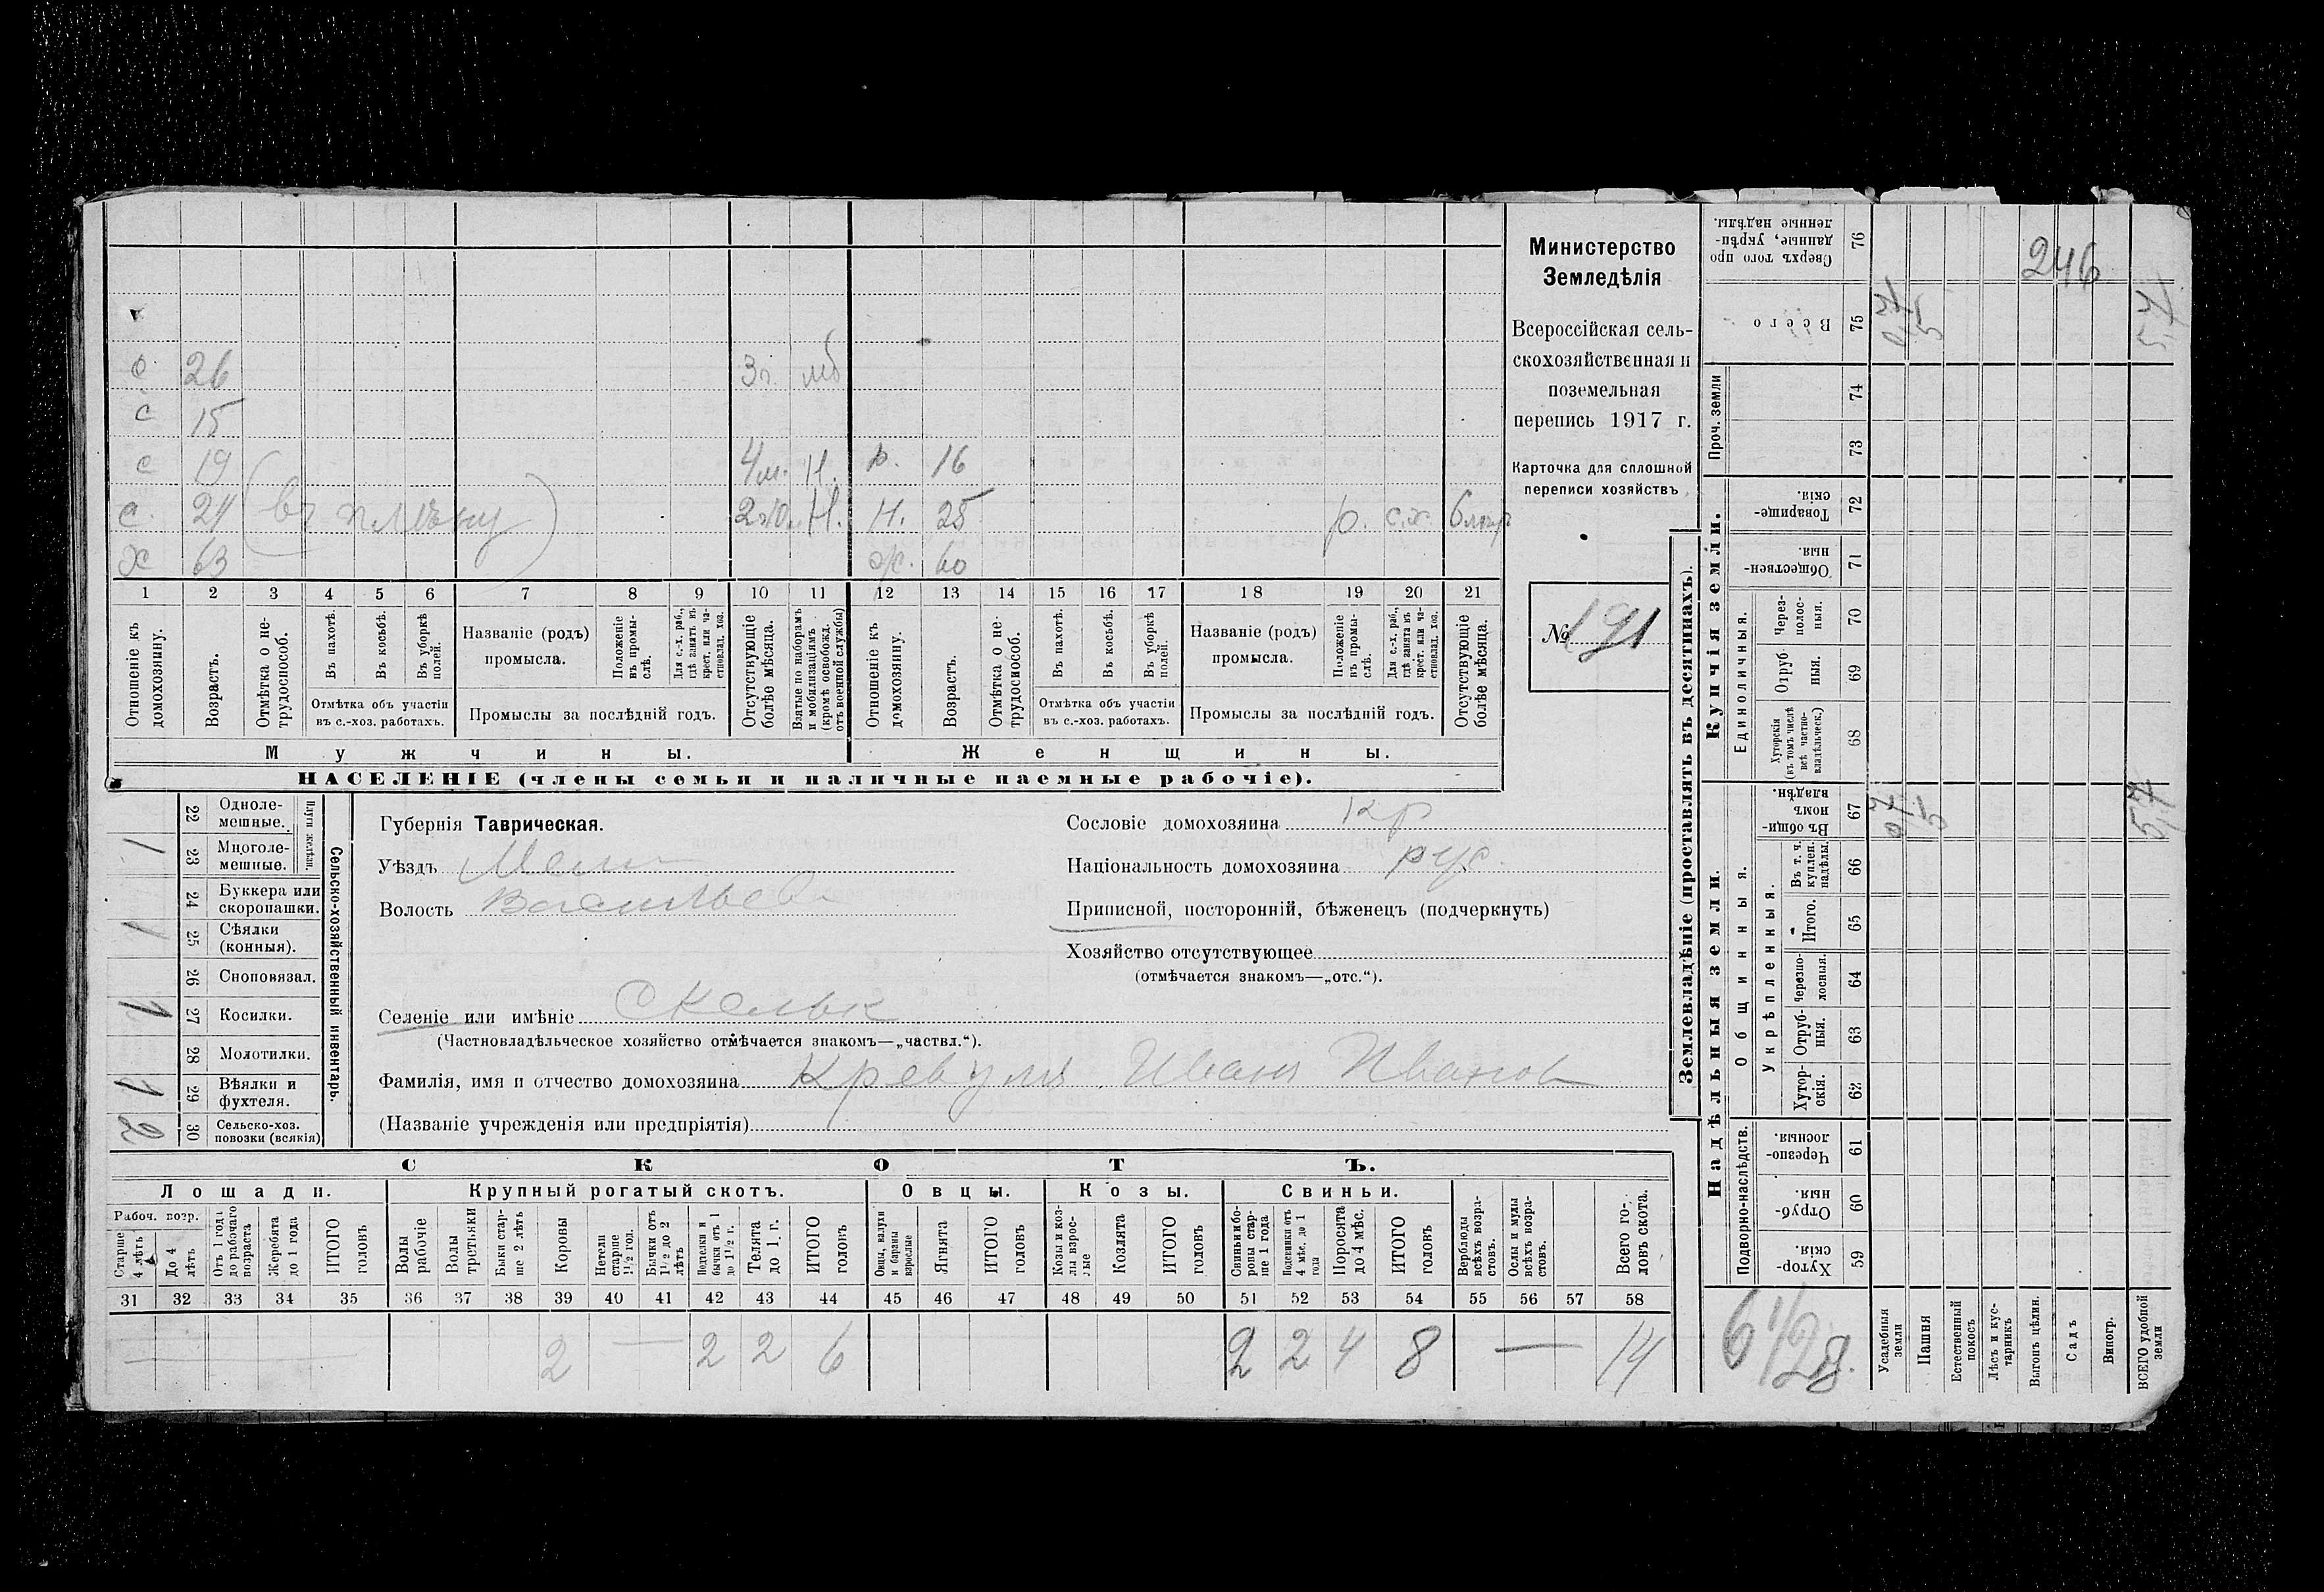 с 26 3г. мб
с 15
с 19 4м. Н. р. 16
с. 24 (въ плѣну) Н. Н. 25 р. с.х.
х 63 ж. 60
1 2 3 4 5 6 7 8 9 10 11 12 13 14 15 16 17 18 19 20 21
Отношеніе къ домохозяину.
Возрастъ.
Отмѣтка о нетрудоспособ.
Въ пахотѣ.
Въ косьбѣ.
Въ уборкѣ полей.
Отмѣтка объ участіи
въ с.-хоз. работахъ.
Названіе (родъ)
промысла.
Положеніе въ промыслѣ.
Для с.-х. раб., гдѣ занятъ въ крест. или частновлад. хоз.
Промыслы за послѣдній годъ.
Отсутствующіе болѣе мѣсяца.
Взятые по наборамъ и мобилизаціямъ (кромѣ освобожд. отъ военной службы)
Отношеніе къ домохозяину.
Возрастъ.
Отмѣтка о нетрудоспособ.
Въ пахотѣ.
Въ косьбѣ.
Въ уборкѣ полей.
Отмѣтка объ участіи
въ с.-хоз. работахъ.
Названіе (родъ)
промысла.
Положеніе въ промыслѣ.
Для с.-х. раб., гдѣ занята въ крест. или частновлад. хоз.
Промыслы за послѣдній годъ.
Отсутствующіе болѣе мѣсяца.
Мужчины.
Женщины.
НАСЕЛЕНІЕ (члены семьи и наличные наемные рабочіе).
Министерство
Земледѣлія
Всероссійская сель-
скохозяйственная и
поземельная
перепись 1917 г.
Карточка для сплошной
переписи хозяйствъ
№ 191
Сельско-хозяйственный инвентарь.
Плуги желѣзн.
22 Одноле-
мешные.
1 23 Многоле-
мешные.
24 Буккера или
скоропашки.
1 25 Сѣялки
(конныя).
26 Сноповязал.
1 27 Косилки.
28 Молотилки.
1 29 Вѣялки и
фухтеля.
2 30 Сельско-хоз.
повозки (всякія)
Губернія Таврическая.
Уѣздъ Мели
Волость Васильев
Селеніе или имѣніе Скельк
(Частновладѣльческое хозяйство отмѣчается знакомъ—„частвл.“).
Фамилія, имя и отчество домохозяина Кревуля Иванъ Иванов
(Названіе учрежденія или предпріятія)
Сословіе домохозяина кр
Національность домохозяина рус.
Приписной, посторонній, бѣженецъ (подчеркнуть)
Хозяйство отсутствующее
(отмѣчается знакомъ—„отс.“).
СКОТЪ.
Лошади. Крупный рогатый скотъ. Овцы. Козы. Свиньи.
Рабоч. возр.
Старше 4 лѣтъ
До 4 лѣтъ
Отъ 1 года до рабочаго возраста
Жеребята до 1 года
ИТОГО головъ
Волы рабочіе
Волы третьяки
Быки старше 2 лѣтъ
Коровы
Нетели старше 1½ год.
Бычки отъ 1½ до 2 лѣтъ
Подтелки и бычки отъ 1 до 1½ г.
Телята до 1 г.
ИТОГО головъ
Овцы, валухи и бараны взрослые
Ягнята
ИТОГО головъ
Козы и козлы взрослые
Козлята
ИТОГО головъ
Свиньи и боровы старше 1 года
Подсвинки отъ 4 мѣс. до 1 года
Поросята до 4 мѣс.
ИТОГО головъ
Верблюды всѣхъ возрастовъ.
Ослы и мулы всѣхъ возрастовъ.
Всего головъ скота.
31 32 33 34 35 36 37 38 39 40 41 42 43 44 45 46 47 48 49 50 51 52 53 54 55 56 57 58
— 2 — 2 2 6 2 2 4 8 — 14
Землевладѣніе (проставлять въ десятинахъ).
Купчія земли.
Надѣльныя земли.
Сверхъ того проданные, укрѣпленные надѣлы. 76
246
Всего 75 5,7
Проч. земли
74
73
Товарищескія. 72
Общественныя. 71
Единоличныя.
Черезполосныя. 70
Отрубныя. 69
Хуторскія (въ томъ числѣ всѣ частновладѣльческ.) 68
Общинныя.
Въ общинномъ владѣн. 67 5,7
Укрѣпленныя.
Въ т. ч. куплен. надѣлы. 66
Итого. 65
Черезполосныя. 64
Отрубныя. 63
Хуторскія. 62
Подворно-наслѣдств.
Черезполосныя. 61
Отрубныя. 60
Хуторскія. 59
Усадебныя земли
Пашня
Естественный покосъ
Лѣсъ и кустарникъ
Выгонъ цѣлин.
Садъ
Виногр.
ВСЕГО удобной земли